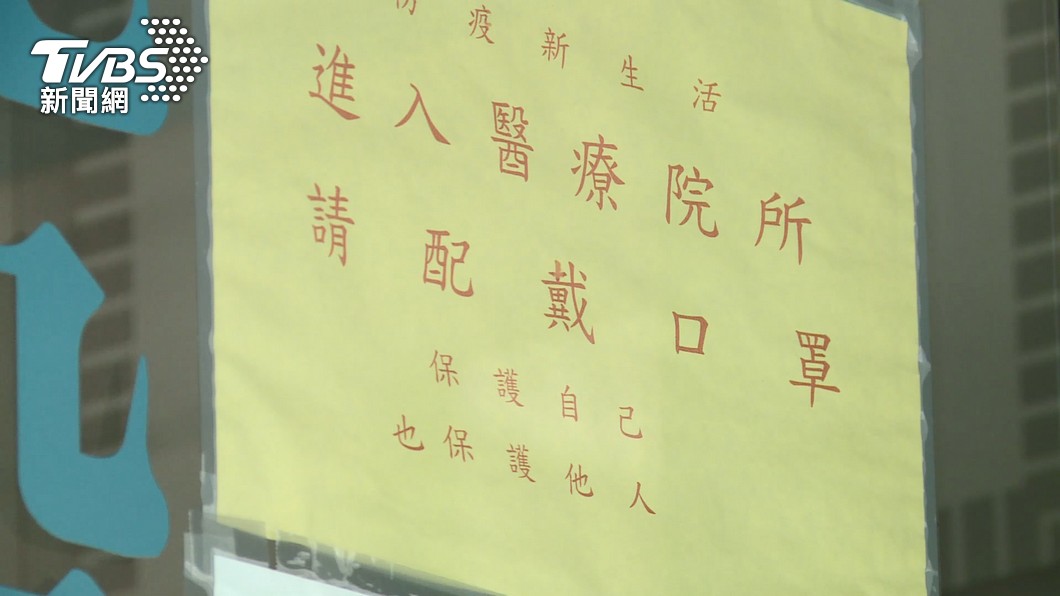 TVBS
新聞網
防疫新生活
進入醫療院所
請配戴口罩
保護自己
也保護他人